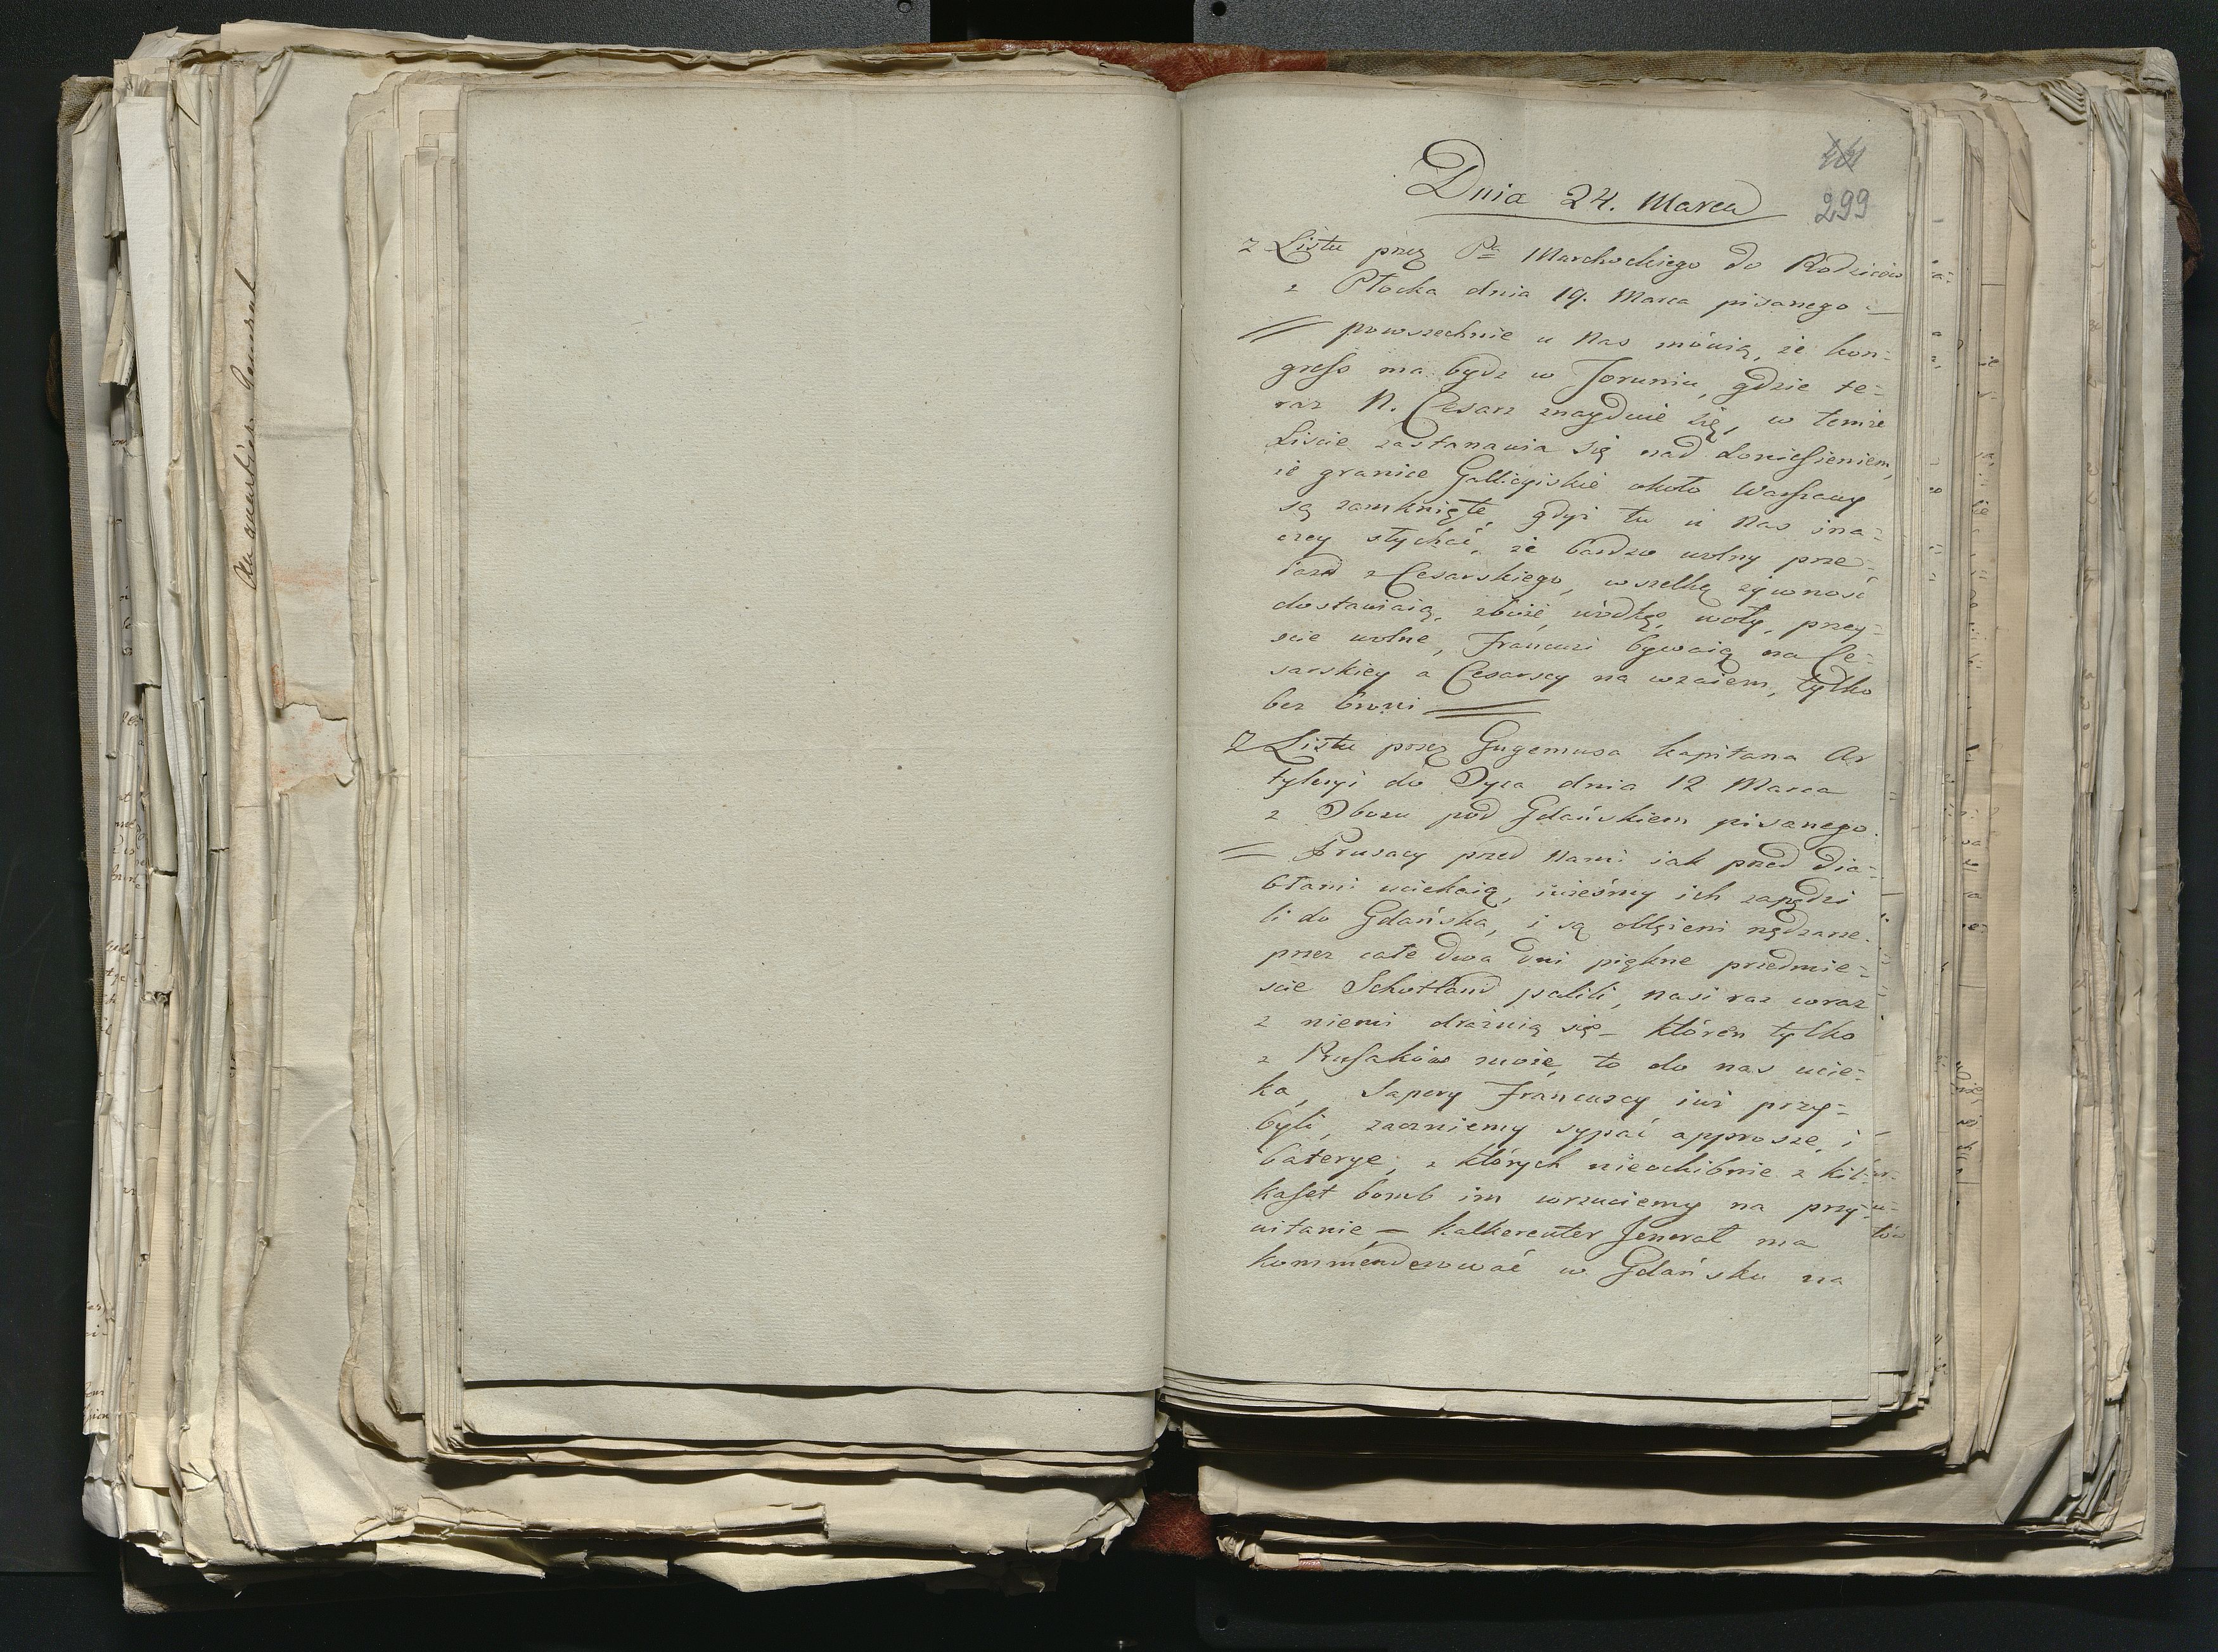 Au quartier General
299
Dnia 24. Marca
z Listu przez Pa Marchockiego do Rodziców
z Płocka dnia 19. Marca pisanego
powszechnie u Nas mówią, że kon=
greſs ma bydz w Toruniu, gdzie te=
raz N. Cesarz znayduie się, w temże
Liscie zastanawia się nad doniesieniem,
że granice Gallicyiskie około Warſzawy
są zamknięte, gdyż tu u Nas ina=
czey słychać, że bardzo wolny prze=
iazd z Cesarskiego, wszelką żywnosc
dostawiaią, zboże, wódkę, woły, przey=
scie wolne, Francuzi bywaią na Ce=
sarskiey a Cesarscy na wzaiem, tylko
bez broni
Z Listu przez Gugemusa kapitana Ar
tyleryi do Oyca dnia 12 Marca
z Obozu pod Gdańskiem pisanego.
Prusacy przed Nami iak przed dia=
błami uciekaią, iużeśmy ich zapędzi
li do Gdańska, i są oblężeni nędzarze.
przez całe dwa dni piękne przedmie=
scie Schotland palili, nasi raz wraz
z niemi drażnią się – któren tylko
z Pruſaków może, to do nas ucie=
ka, Sapery Francuscy iuż przy=
byli, zaczniemy sypać approsze, i
baterye, z których nieochibnie z kil=
kaſet bomb im wrzuciemy na przy=
witanie – kalkereuter Jenerał ma
kommenderować w Gdańsku na